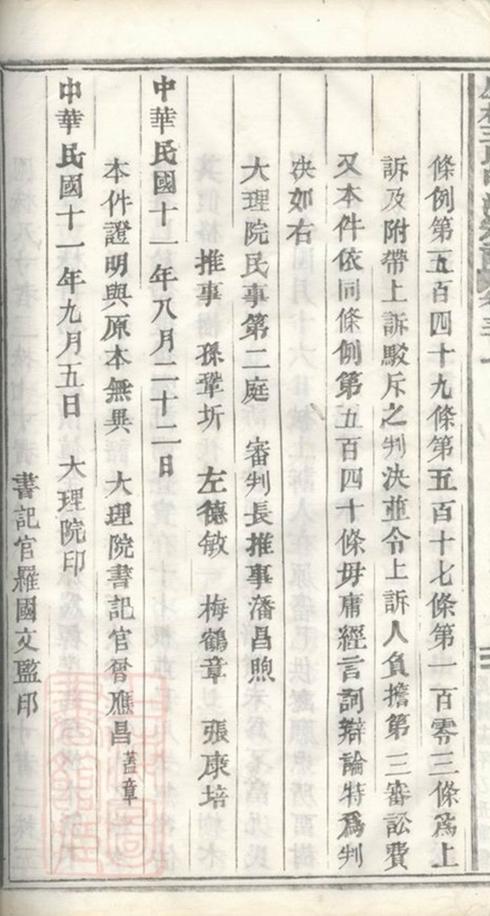 條例第五百四十九條第五百十七條第一百零三條爲上
訴及附帶上訴駁斥之判決並令上訴人負擔第三審訟費
又本件依同條例第五百四十條毋庸經言詞辯論特爲判
決如右
大理院民事第二庭 審判長推事潘昌煦
推事 孫鞏圻 左德敏 梅鶴章 張康培
中華民國十一年八月二十二日
本件證明與原本無異 大理院書記官曾應昌 蓋章
中華民國十一年九月五日 大理院印
書記官羅國文監印